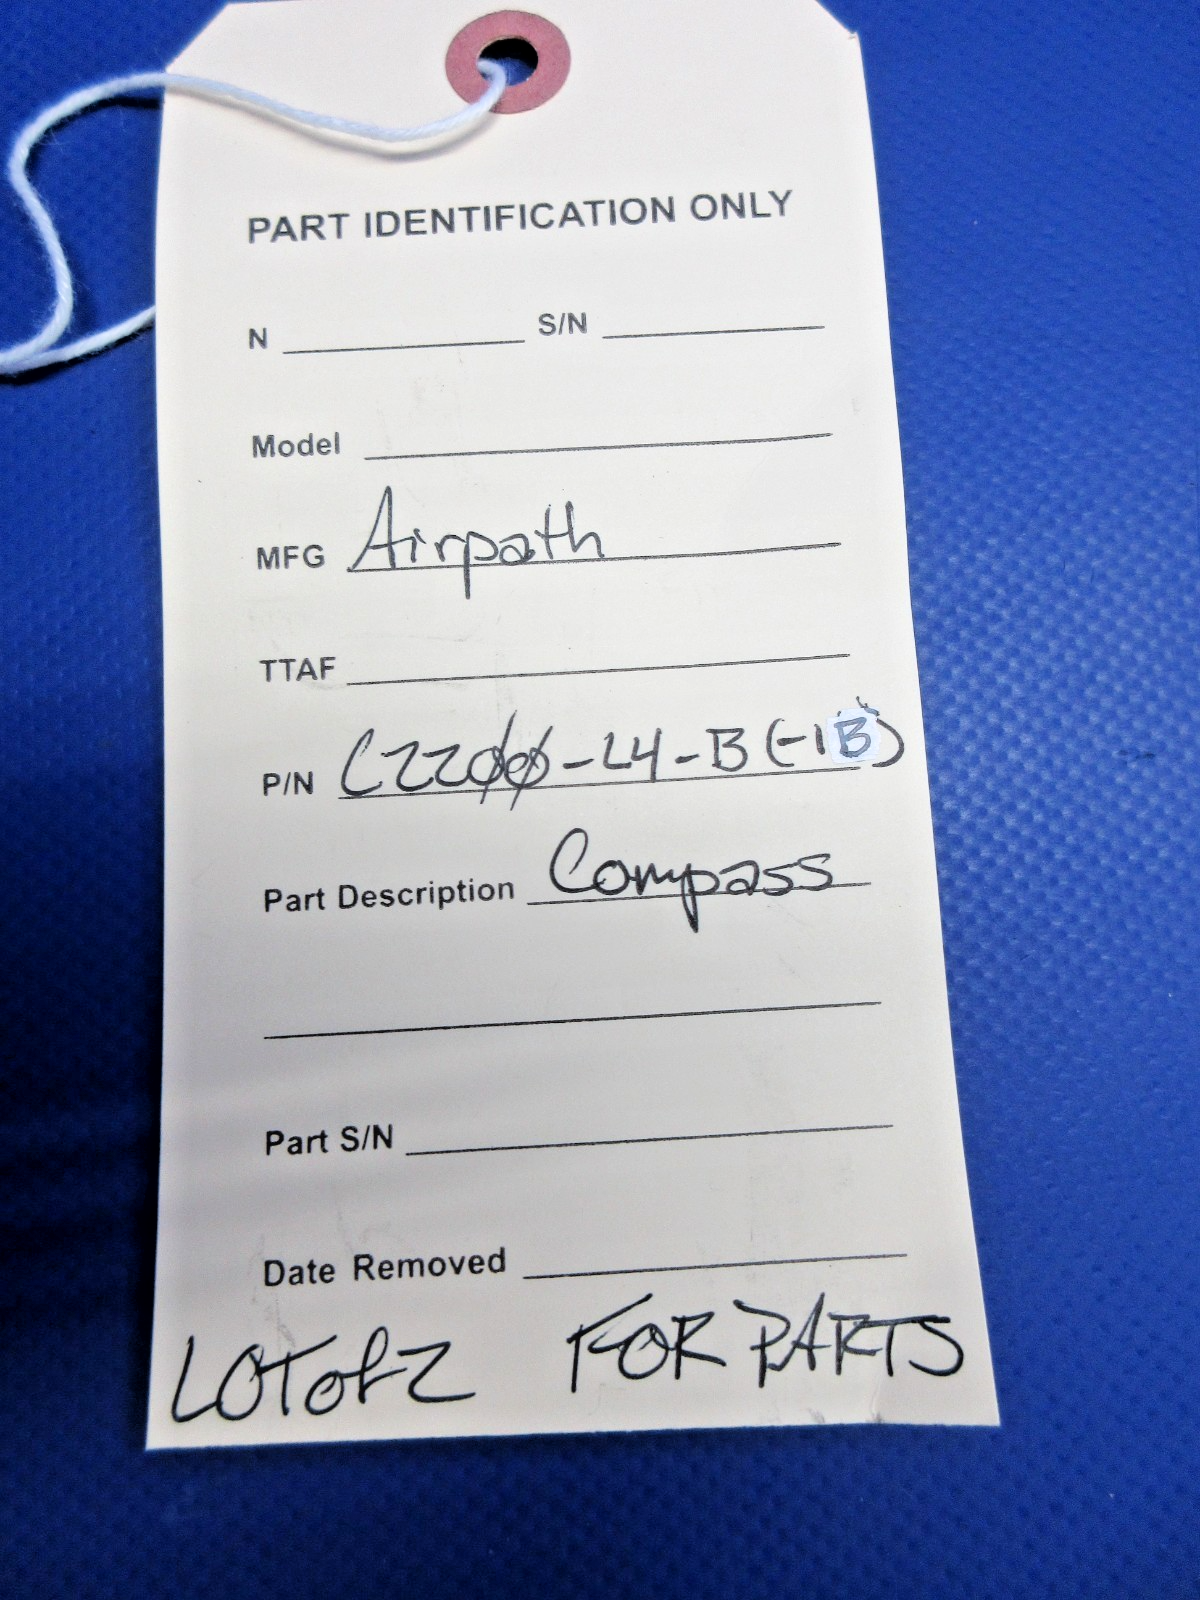 PART IDENTIFICATION ONLY
N S/N
Model
MFG Airpath
TTAF
P/N C22ØØ-L4-B (-1B)
Part Description Compass
Part S/N
Date Removed
LOT of 2 FOR PARTS